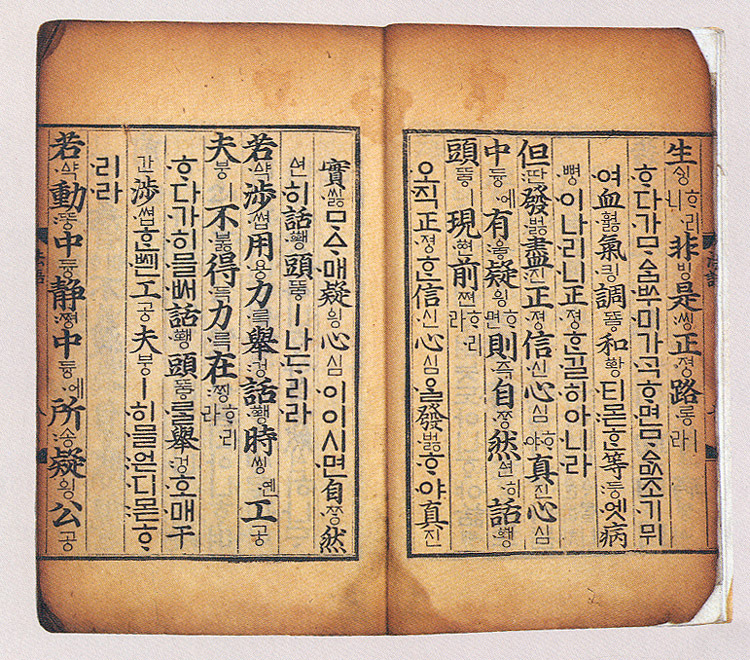 生ᄉᆡᆼᄒᆞ리니非빙是씽正졍路롱ㅣ라
ᄒᆞ다가ᄆᆞᅀᆞᆷᄡᅮ미가ᄀᆞᆨᄒᆞ면ᄆᆞᅀᆞᇝ조기뮈
여血ᅘᆑᇙ氣킝調뚀ᇢ和ᅘᅪᆼ티몯ᄒᆞᆫ等등엣病
뼝이나리니正졍ᄒᆞᆫ길히아니라
但딴發벓盡찐正졍信신心심ᄒᆞ야真진心심
中듕에有ᅌᅮᇢ疑읭ᄒᆞ면則즉自ᄍᆞᆼ然ᅀᅧᆫ히話ᅘᅪᆼ
頭뚜ᇢㅣ現ᅘᅧᆫ前쪈ᄒᆞ리라
오직正졍ᄒᆞᆫ信신心심을發벓ᄒᆞ야真진
實씷ᄆᆞᅀᆞ매疑읭心심이이시면自ᄍᆞᆼ然
ᅀᅧᆫ히話ᅘᅪᆼ頭뚜ᇢㅣ나ᄃᆞ리라
若ᅀᅣᆨ涉쎱用용力륵擧겅話ᅘᅪᆼ時씽옌工공
夫붕ㅣ不붏得득力륵在ᄍᆡᆼᄒᆞ리라
ᄒᆞ다가히믈ᄡᅥ話ᅘᅪᆼ頭뚜ᇢ를擧겅호매干
간涉쎱ᄒᆞᆫᄢᅦᆫ工공夫붕ㅣ히믈얻디몯ᄒᆞ
리라
若ᅀᅣᆨ動똥中듕静쪙中듕에所송疑읭公공